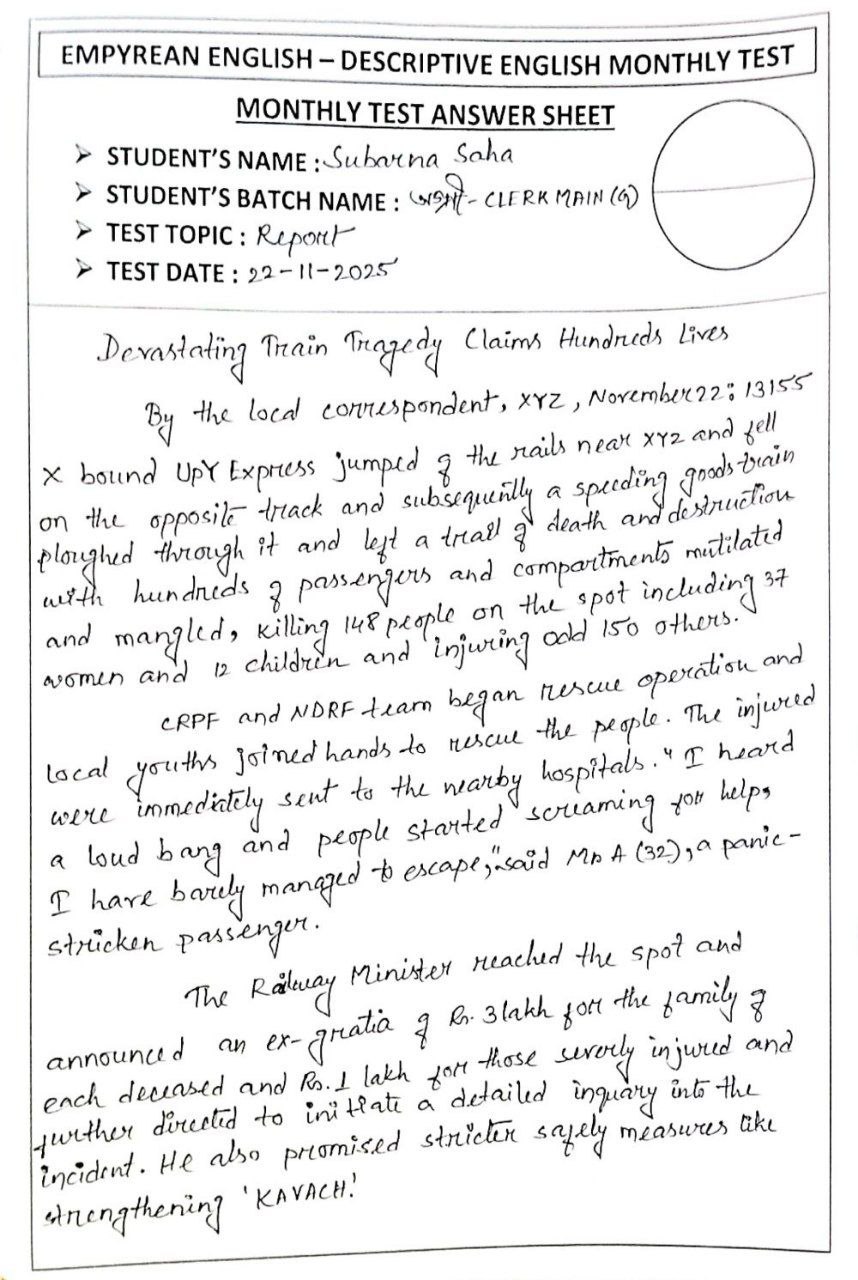 EMPYREAN ENGLISH – DESCRIPTIVE ENGLISH MONTHLY TEST
MONTHLY TEST ANSWER SHEET
➤ STUDENT'S NAME : Subarna Saha
➤ STUDENT'S BATCH NAME : - CLERK MAIN (G)
➤ TEST TOPIC : Report
➤ TEST DATE : 22-11-2025
Devastating Train Tragedy Claims Hundreds Lives
By the local correspondent, XYZ, November 22: 13155
X bound UpY Express jumped of the rails near XYZ and fell
on the opposite track and subsequently a speeding goods train
ploughed through it and left a trail of death and destruction
with hundreds of passengers and compartments mutilated
and mangled, killing 148 people on the spot including 37
women and 12 children and injuring odd 150 others.
CRPF and NDRF team began rescue operation and
local youths joined hands to rescue the people. The injured
were immediately sent to the nearby hospitals. "I heard
a loud bang and people started screaming for help,
I have barely managed to escape," said Mr A (32), a panic-
stricken passenger.
The Railway Minister reached the spot and
announced an ex-gratia of Rs. 3 lakh for the family of
each deceased and Rs. 1 lakh for those severly injured and
further directed to initiate a detailed inquary into the
incident. He also promised stricter safely measures like
strengthening 'KAVACH'.